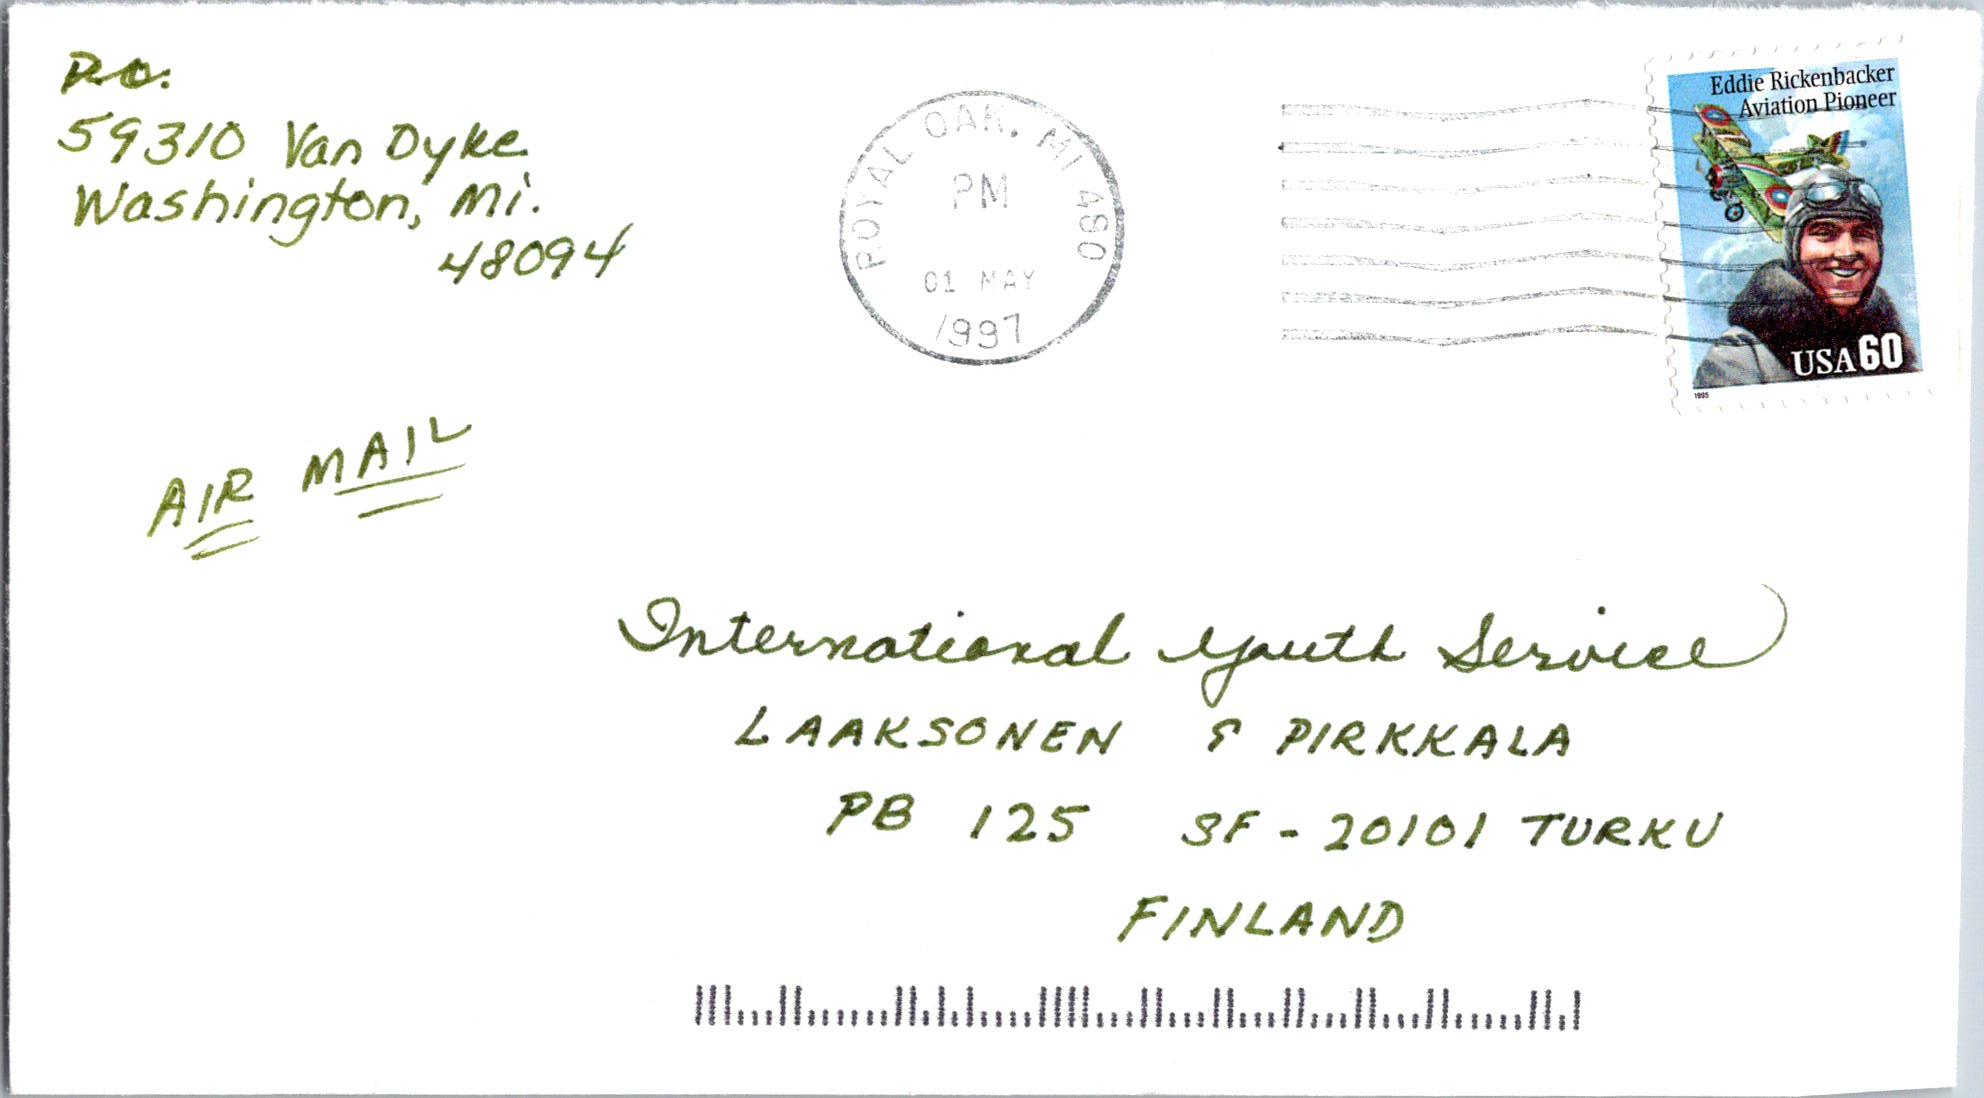 P.O.
59310 Van Dyke
Washington, Mi.
48094
ROYAL OAK, MI 480
PM
01 MAY
1997
Eddie Rickenbacker
Aviation Pioneer
USA 60
1995
AIR MAIL
International Youth Service
LAAKSONEN & PIRKKALA
PB 125 SF - 20101 TURKU
FINLAND